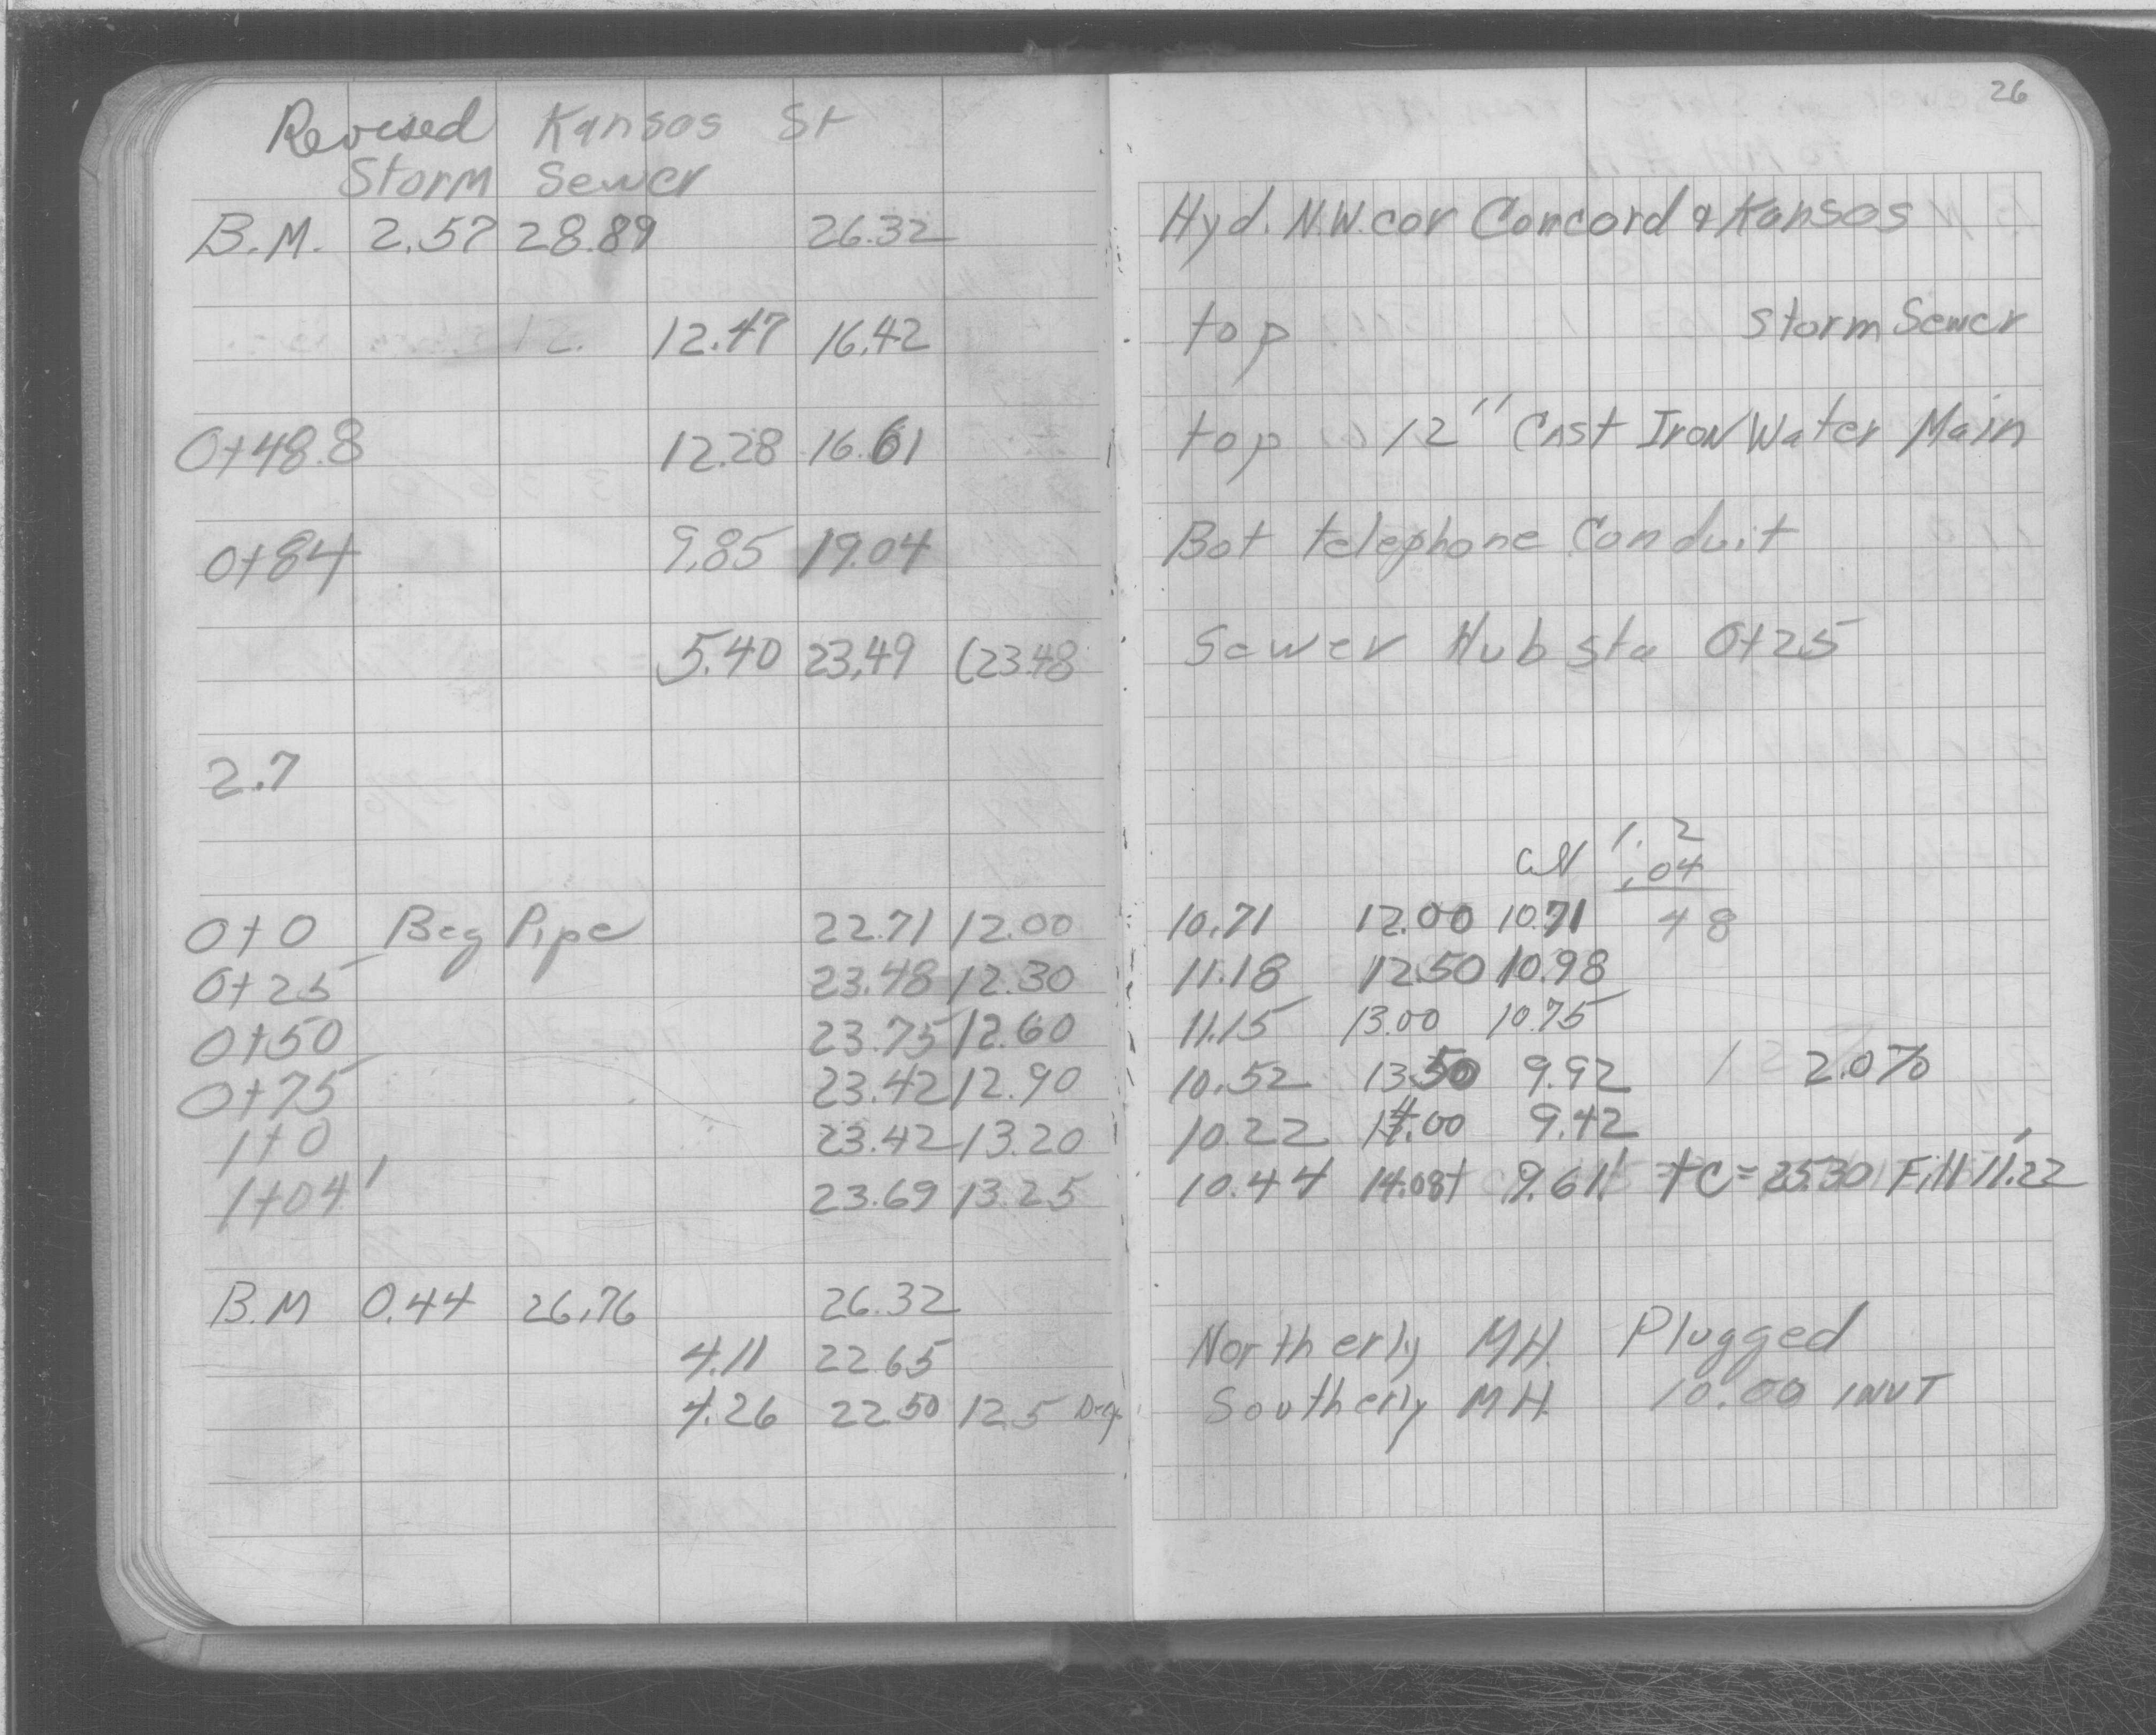 Revised Kansas St
Storm Sewer
B.M. 2.57 28.89 26.32
12.47 16.42
0+48.8 12.28 16.61
0+84 9.85 19.04
5.40 23.49 (23.48
2.7
0+0 Beg Pipe 22.71 12.00
0+25 23.48 12.30
0+50 23.75 12.60
0+75 23.42 12.90
1+0 23.42 13.20
1+04' 23.69 13.25
B.M 0.44 26.76 26.32
4.11 22.65
4.26 22.50 12.5 Deep
26
Hyd. N.W. cor Concord & Kansas
top storm Sewer
top 12" Cast Iron Water Main
Bot telephone Conduit
Sewer Hub sta 0+25
1.2
.04
10.71 12.00 10.71 48
11.18 12.50 10.98
11.15 13.00 10.75
10.52 13.50 9.92 2.0%
10.22 14.00 9.42
10.44 14.08+ 9.61' TC= 25.30 Fill 11.22
Northerly MH. Plugged
Southerly MH 10.00 INVT